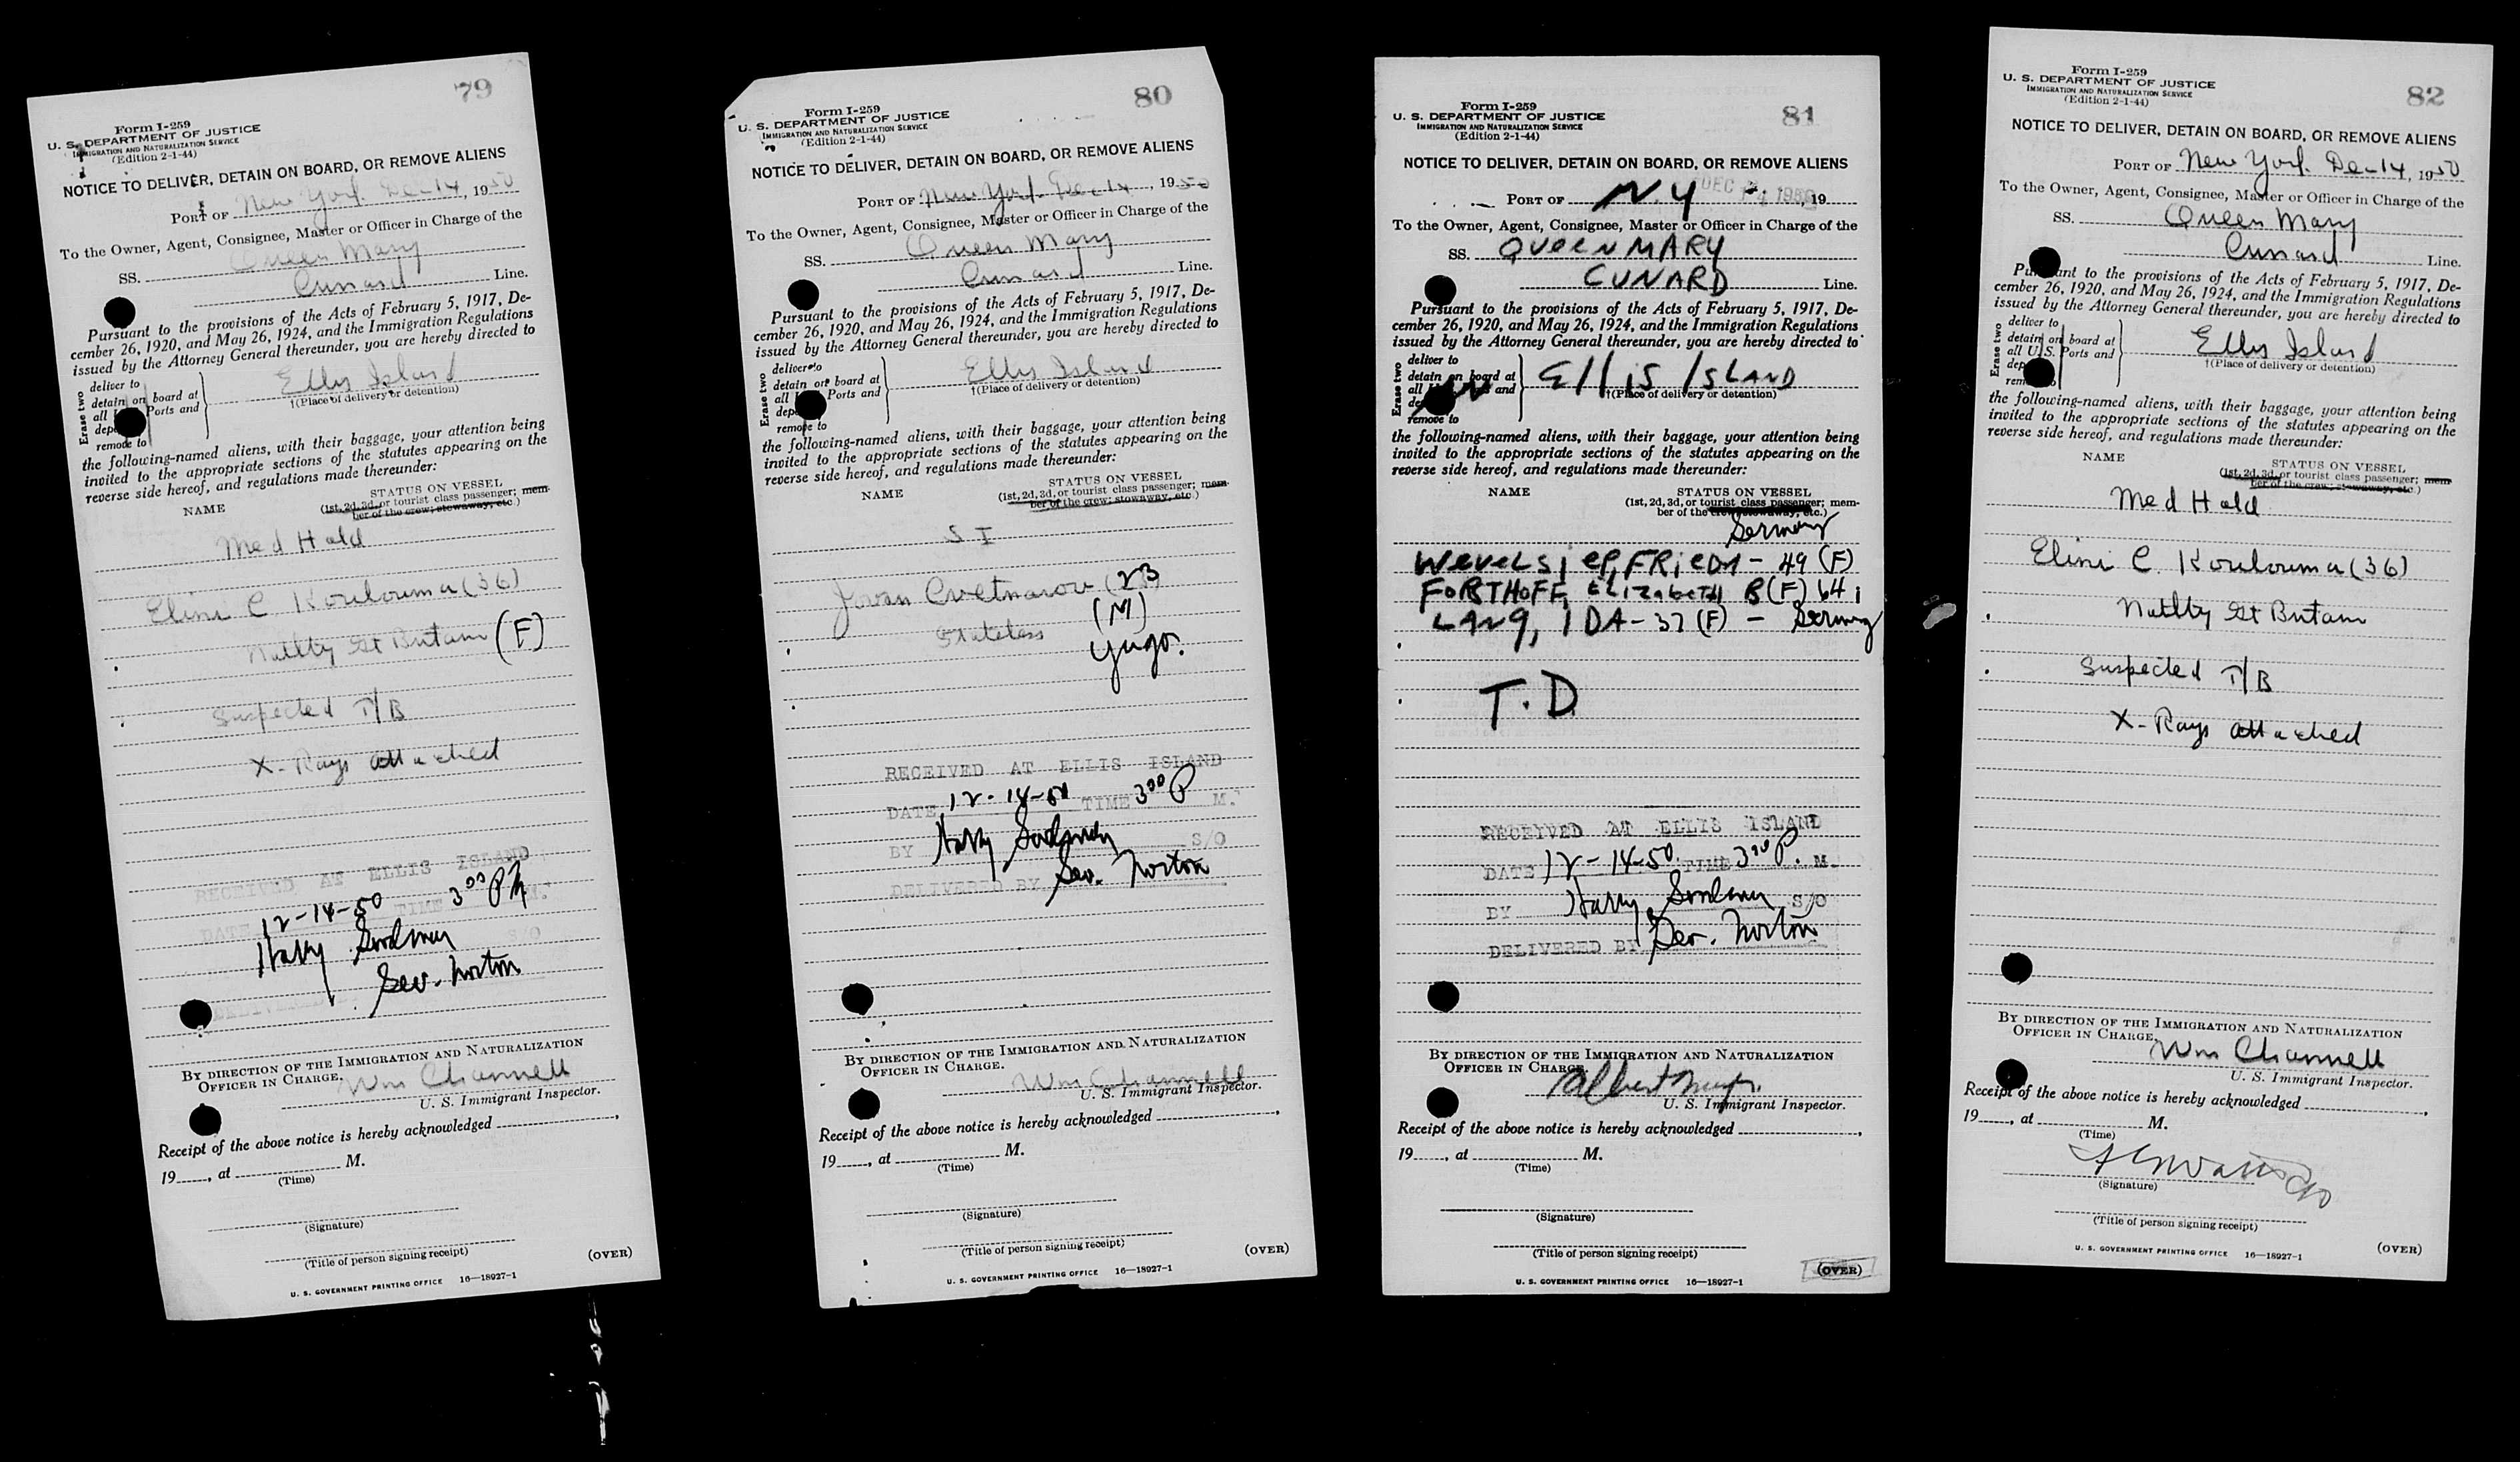 79
Form I-259
U. S. DEPARTMENT OF JUSTICE
IMMIGRATION AND NATURALIZATION SERVICE
(Edition 2-1-44)
NOTICE TO DELIVER, DETAIN ON BOARD, OR REMOVE ALIENS
PORT OF New York Dec 14, 1950
To the Owner, Agent, Consignee, Master or Officer in Charge of the
SS. Queen Mary
Cunard Line.
Pursuant to the provisions of the Acts of February 5, 1917, De-
cember 26, 1920, and May 26, 1924, and the Immigration Regulations
issued by the Attorney General thereunder, you are hereby directed to
Erase two
deliver to
detain on board at
all Ports and
remove to
Ellis Island
†(Place of delivery or detention)
the following-named aliens, with their baggage, your attention being
invited to the appropriate sections of the statutes appearing on the
reverse side hereof, and regulations made thereunder:
NAME
STATUS ON VESSEL
(1st, 2d, 3d, or tourist class passenger; mem-
ber of the crew; stowaway, etc.)
Med Hold
Elini C. Koulouma (36)
Natlty Gt Britain (F)
Suspected T/B
X-Rays attached
RECEIVED AT ELLIS ISLAND
DATE 12-14-50 TIME 3 00 P M.
Harry S/O
Norton
BY DIRECTION OF THE IMMIGRATION AND NATURALIZATION
OFFICER IN CHARGE.
Wm Channell
U. S. Immigrant Inspector.
Receipt of the above notice is hereby acknowledged
19 , at M.
(Time)
(Signature)
(Title of person signing receipt)
(OVER)
U. S. GOVERNMENT PRINTING OFFICE 16—18927-1
80
Form I-259
U. S. DEPARTMENT OF JUSTICE
IMMIGRATION AND NATURALIZATION SERVICE
(Edition 2-1-44)
NOTICE TO DELIVER, DETAIN ON BOARD, OR REMOVE ALIENS
PORT OF New York Dec 14, 1950
To the Owner, Agent, Consignee, Master or Officer in Charge of the
SS. Queen Mary
Cunard Line.
Pursuant to the provisions of the Acts of February 5, 1917, De-
cember 26, 1920, and May 26, 1924, and the Immigration Regulations
issued by the Attorney General thereunder, you are hereby directed to
Erase two
deliver to
detain on board at
all Ports and
remove to
Ellis Island
†(Place of delivery or detention)
the following-named aliens, with their baggage, your attention being
invited to the appropriate sections of the statutes appearing on the
reverse side hereof, and regulations made thereunder:
NAME
STATUS ON VESSEL
(1st, 2d, 3d, or tourist class passenger; mem-
ber of the crew; stowaway, etc.)
S I
Jovan (23)
(M)
Stateless
Yugo.
RECEIVED AT ELLIS ISLAND
DATE 12-14-50 TIME 3 00 P M.
BY Harry S/O
DELIVERED BY Norton
BY DIRECTION OF THE IMMIGRATION AND NATURALIZATION
OFFICER IN CHARGE.
Wm Channell
U. S. Immigrant Inspector.
Receipt of the above notice is hereby acknowledged
19 , at M.
(Time)
(Signature)
(Title of person signing receipt)
(OVER)
U. S. GOVERNMENT PRINTING OFFICE 16—18927-1
81
Form I-259
U. S. DEPARTMENT OF JUSTICE
IMMIGRATION AND NATURALIZATION SERVICE
(Edition 2-1-44)
NOTICE TO DELIVER, DETAIN ON BOARD, OR REMOVE ALIENS
PORT OF N.Y DEC 14 1950, 19
To the Owner, Agent, Consignee, Master or Officer in Charge of the
SS. QUEEN MARY
CUNARD Line.
Pursuant to the provisions of the Acts of February 5, 1917, De-
cember 26, 1920, and May 26, 1924, and the Immigration Regulations
issued by the Attorney General thereunder, you are hereby directed to
Erase two
deliver to
detain on board at
all and
remove to
Ellis ISLAND
†(Place of delivery or detention)
the following-named aliens, with their baggage, your attention being
invited to the appropriate sections of the statutes appearing on the
reverse side hereof, and regulations made thereunder:
NAME
STATUS ON VESSEL
(1st, 2d, 3d, or tourist class passenger; mem-
ber of the crew; stowaway, etc.)
Germany
WEVELSIEP, FRIEDA - 49 (F)
FORTHOFF, ELIZABETH B (F) 64
LANG, IDA - 37 (F) - Germany
T.D.
RECEIVED AT ELLIS ISLAND
DATE 12-14-50 TIME 3 00 P. M.
BY Harry S/O
DELIVERED BY Norton
BY DIRECTION OF THE IMMIGRATION AND NATURALIZATION
OFFICER IN CHARGE.
Albert
U. S. Immigrant Inspector.
Receipt of the above notice is hereby acknowledged
19 , at M.
(Time)
(Signature)
(Title of person signing receipt)
(OVER)
U. S. GOVERNMENT PRINTING OFFICE 16—18927-1
82
Form I-259
U. S. DEPARTMENT OF JUSTICE
IMMIGRATION AND NATURALIZATION SERVICE
(Edition 2-1-44)
NOTICE TO DELIVER, DETAIN ON BOARD, OR REMOVE ALIENS
PORT OF New York Dec 14, 1950
To the Owner, Agent, Consignee, Master or Officer in Charge of the
SS. Queen Mary
Cunard Line.
Pursuant to the provisions of the Acts of February 5, 1917, De-
cember 26, 1920, and May 26, 1924, and the Immigration Regulations
issued by the Attorney General thereunder, you are hereby directed to
Erase two
deliver to
detain on board at
all U.S. Ports and
Ellis Island
†(Place of delivery or detention)
the following-named aliens, with their baggage, your attention being
invited to the appropriate sections of the statutes appearing on the
reverse side hereof, and regulations made thereunder:
NAME
STATUS ON VESSEL
(1st, 2d, 3d, or tourist class passenger; mem-
ber of the crew; stowaway, etc.)
Med Hold
Elini C. Koulouma (36)
Natlty Gt Britain
Suspected T/B
X-Rays attached
BY DIRECTION OF THE IMMIGRATION AND NATURALIZATION
OFFICER IN CHARGE.
Wm Channell
U. S. Immigrant Inspector.
Receipt of the above notice is hereby acknowledged
19 , at M.
(Time)
(Signature)
(Title of person signing receipt)
(OVER)
U. S. GOVERNMENT PRINTING OFFICE 16—18927-1